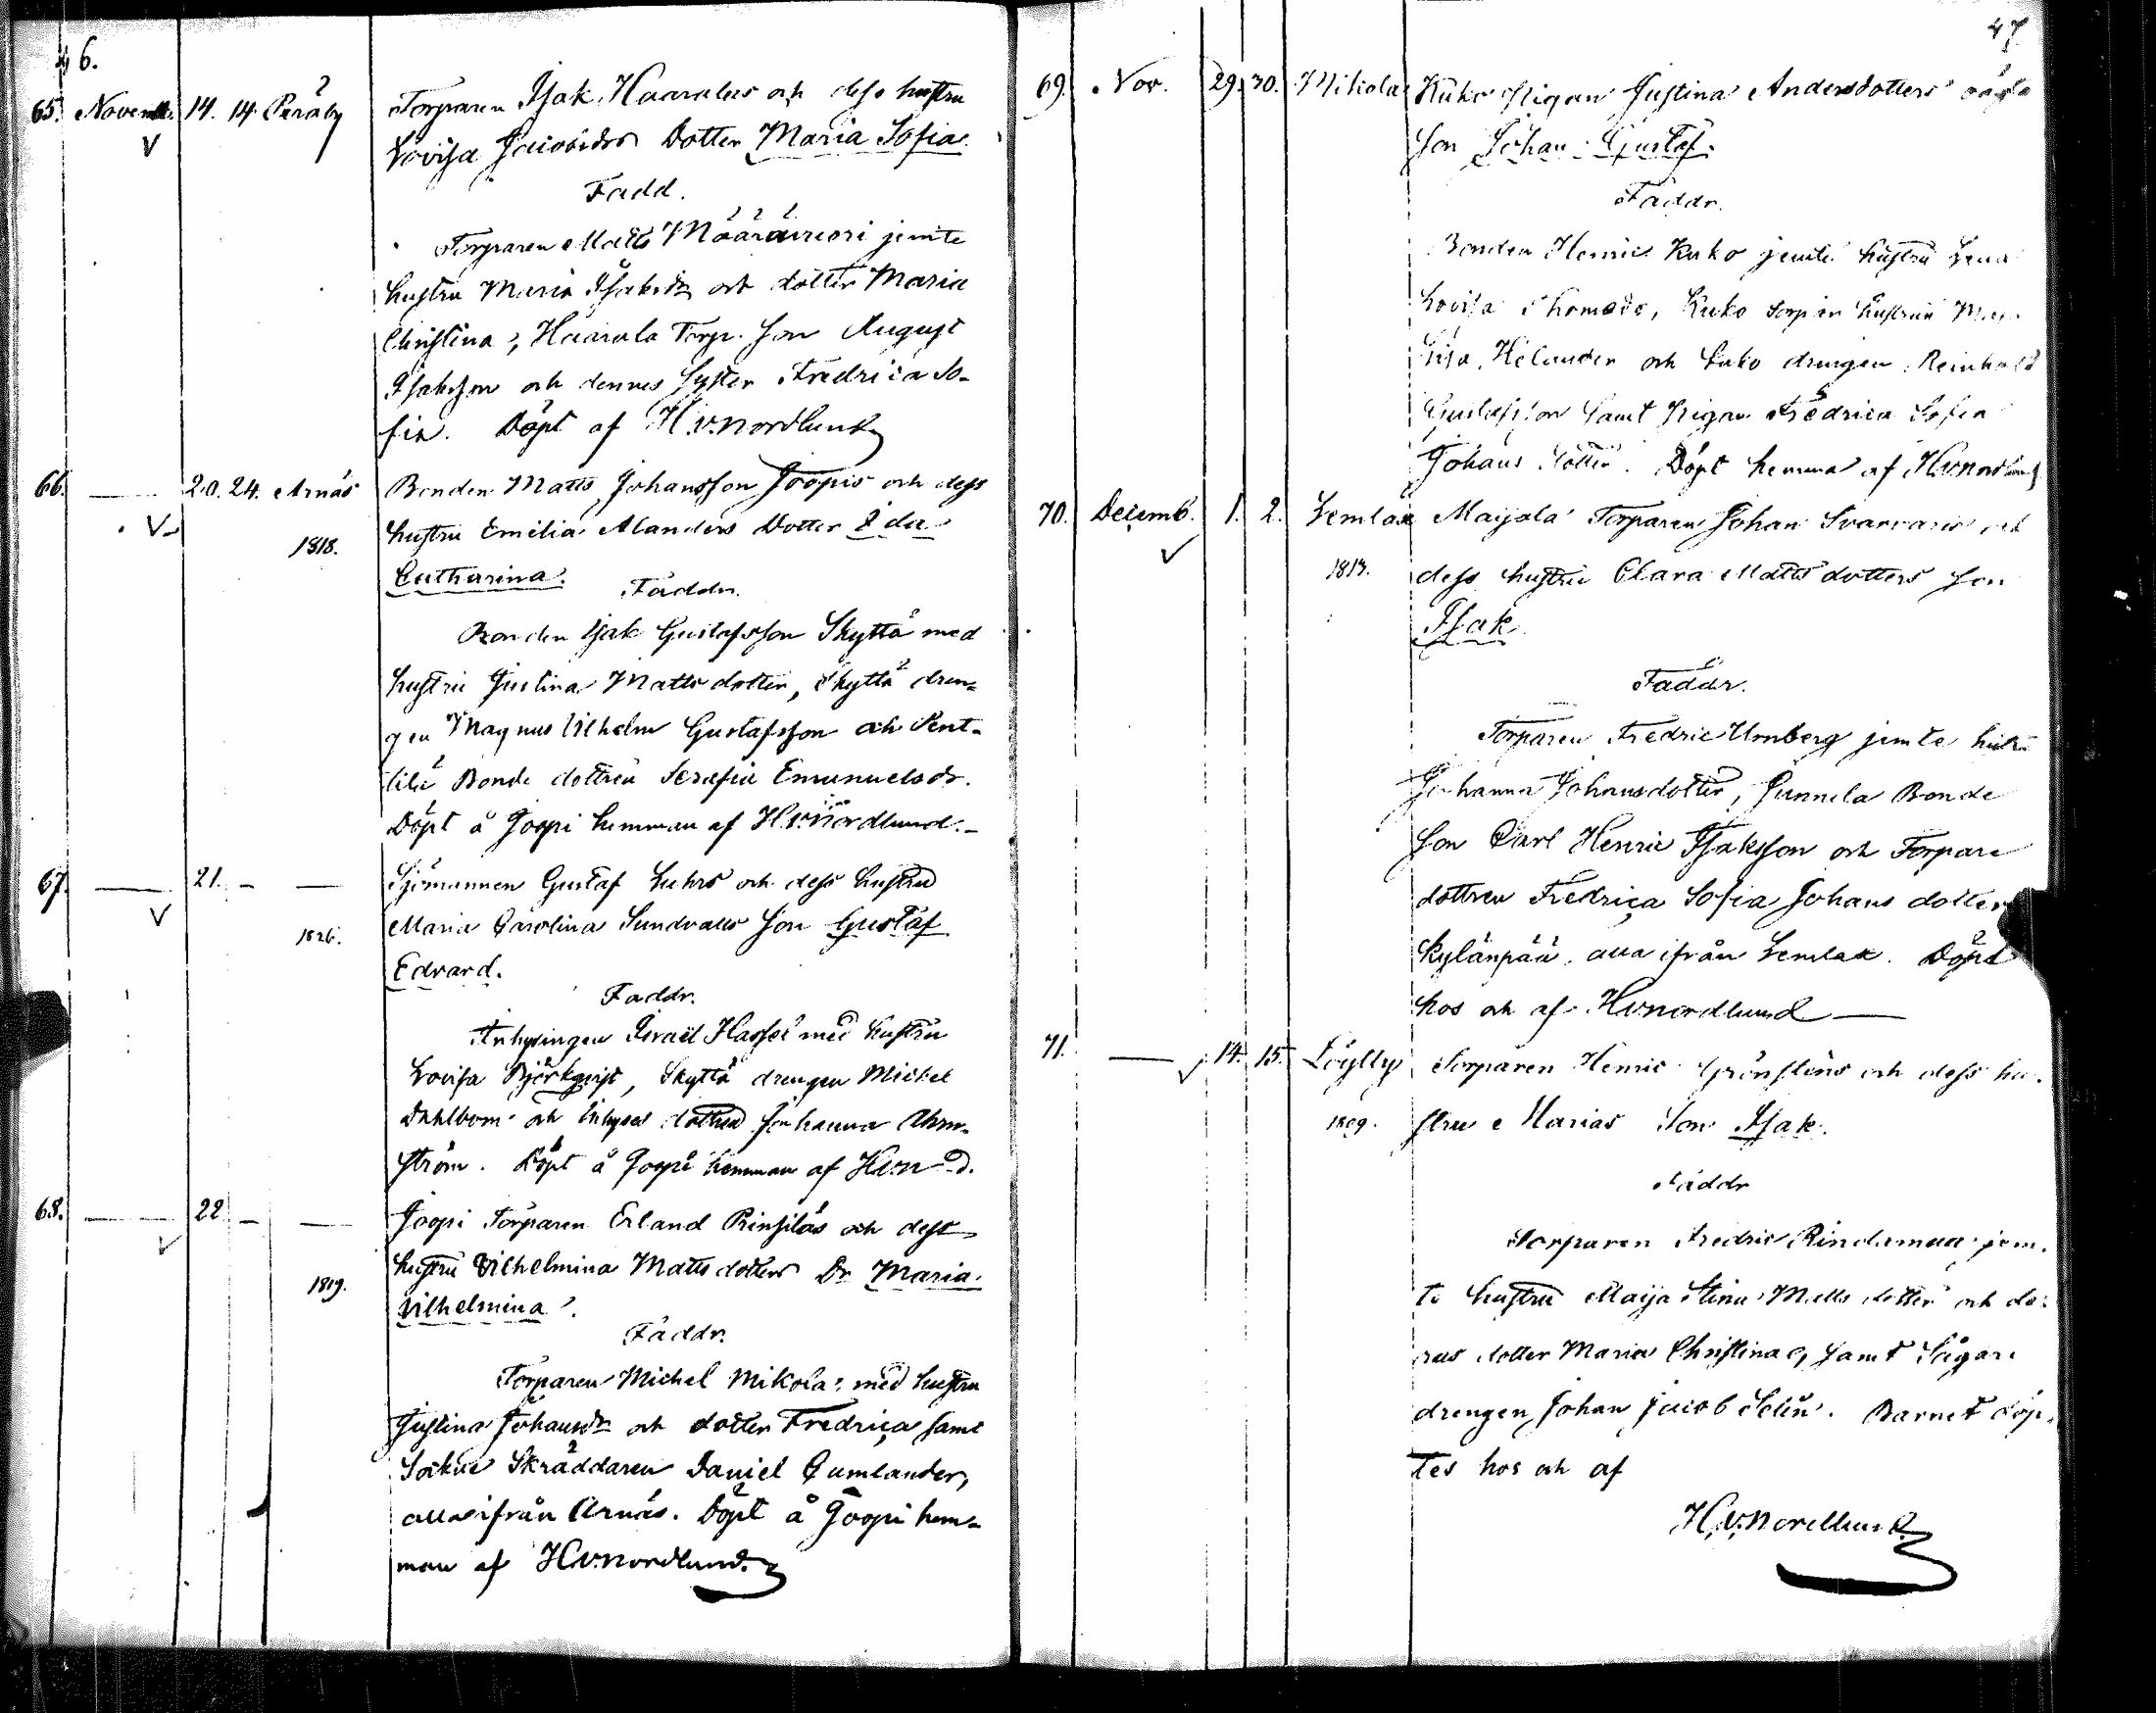 46.
65. Novemb. 14. 14. Peräby Torparen Isak Haaralas och dess hustru
Lovisa Jacobsdrs Dotter Maria Sofia.
Fadd.
Torparen Matts jemte
hustru Maria Isaksdr och dotter Maria
Christina, Haarala Torp. Son August
Isaksson och dennes Syster Fredrica So-
fia. Döpt af H.v.Nordlund
66. — 20. 24. Arnäs Bonden Matts Johansson Joopis och dess
1818. hustru Emilia Alanders Dotter Ida
Catharina.
Faddr.
Bonden Isak Gustafsson Skyttä med
hustru Justina Matts dotter, Skyttä dren-
gen Magnus Vilhelm Gustafsson och Pent-
tilä Bonde dottren Serafia Emanuelsdr.
Döpt å Joopi hemman af H.v.Nordlund.-
67. — 21. - — Sjömannen Gustaf Luhrs och dess hustru
1826. Maria Carolina Sundvalls Son Gustaf
Edvard.
Faddr.
Inhysingen Israël med hustru
Lovisa Björkqvist, Skyttä drengen Michel
Dahlbom och Inhyses dottren Johanna Ahm-
ström. Döpt å Joopi hemman af H.v.N-d.
68. — 22 - — Joopi Torparen Erland Prinsiläs och dess
1819. hustru Vilhelmina Matts dotters Dr Maria
Vilhelmina.
Faddr.
Torparen Michel Mikola med hustru
Justina Johansdr och dotter Fredrica samt
Sockne Skräddaren Daniel Gumlander,
alla ifrån Arnäs. Döpt å Joopi hem-
man af H.v.Nordlund.
47
69. Nov. 29. 30. Mikola Kuko Pigan Justina Andersdotters oägta
Son Johan Gustaf.
Faddr.
Bonden Henric Kuko jemte hustru Lena
Lovisa Thomasdr, Kuko hustrun
Helander och Kuko drengen Reinhold
Gustafsson samt Pigan Fredrica Sofia
Johans dotter. Döpt hemma af H.v.Nordlund
70. Decemb. 1. 2. Lemlax Maijala Torparen Johan Svarvars och
1813. dess hustru Clara Matts dotters Son
Isak
Faddr.
Torparen Fredric Urnberg jemte hustru
Johanna Johansdotter, Junnila Bonde
Son Carl Henric Isaksson och Torpare
dottren Fredrica Sofia Johans dotter
Kylänpää, alla ifrån Lemlax. Döpt
hos och af H.v.Nordlund —
71. — 14. 15. Löylty Torparen Henric Grönsténs och dess hu-
1809. stru Marias Son Isak.
Faddr
Torparen Fredric Rindamaa jem-
te hustru Maija Stina Matts dotter och de-
ras dotter Maria Christina, samt Sågare
drengen Johan Jacob Selin. Barnet döp-
tes hos och af
H.v.Nordlund